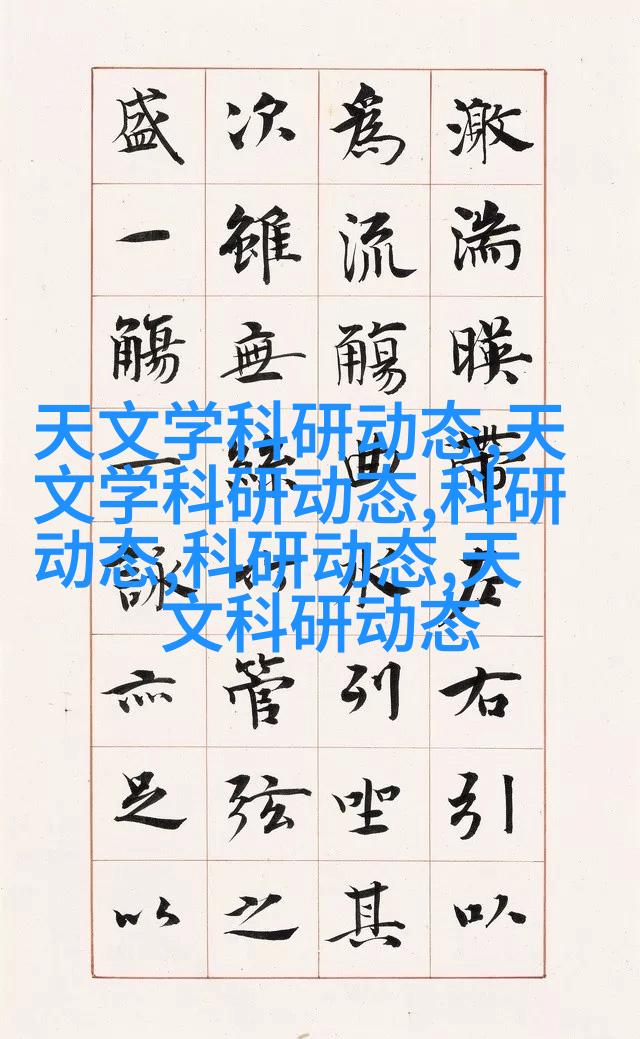 激湍暎帶左右引以
為流觴曲水列坐其
次雖無絲竹管弦之
盛一觴一詠亦足以
天文学科研动态,天
文学科研动态,科研
动态,科研动态,天
文科研动态